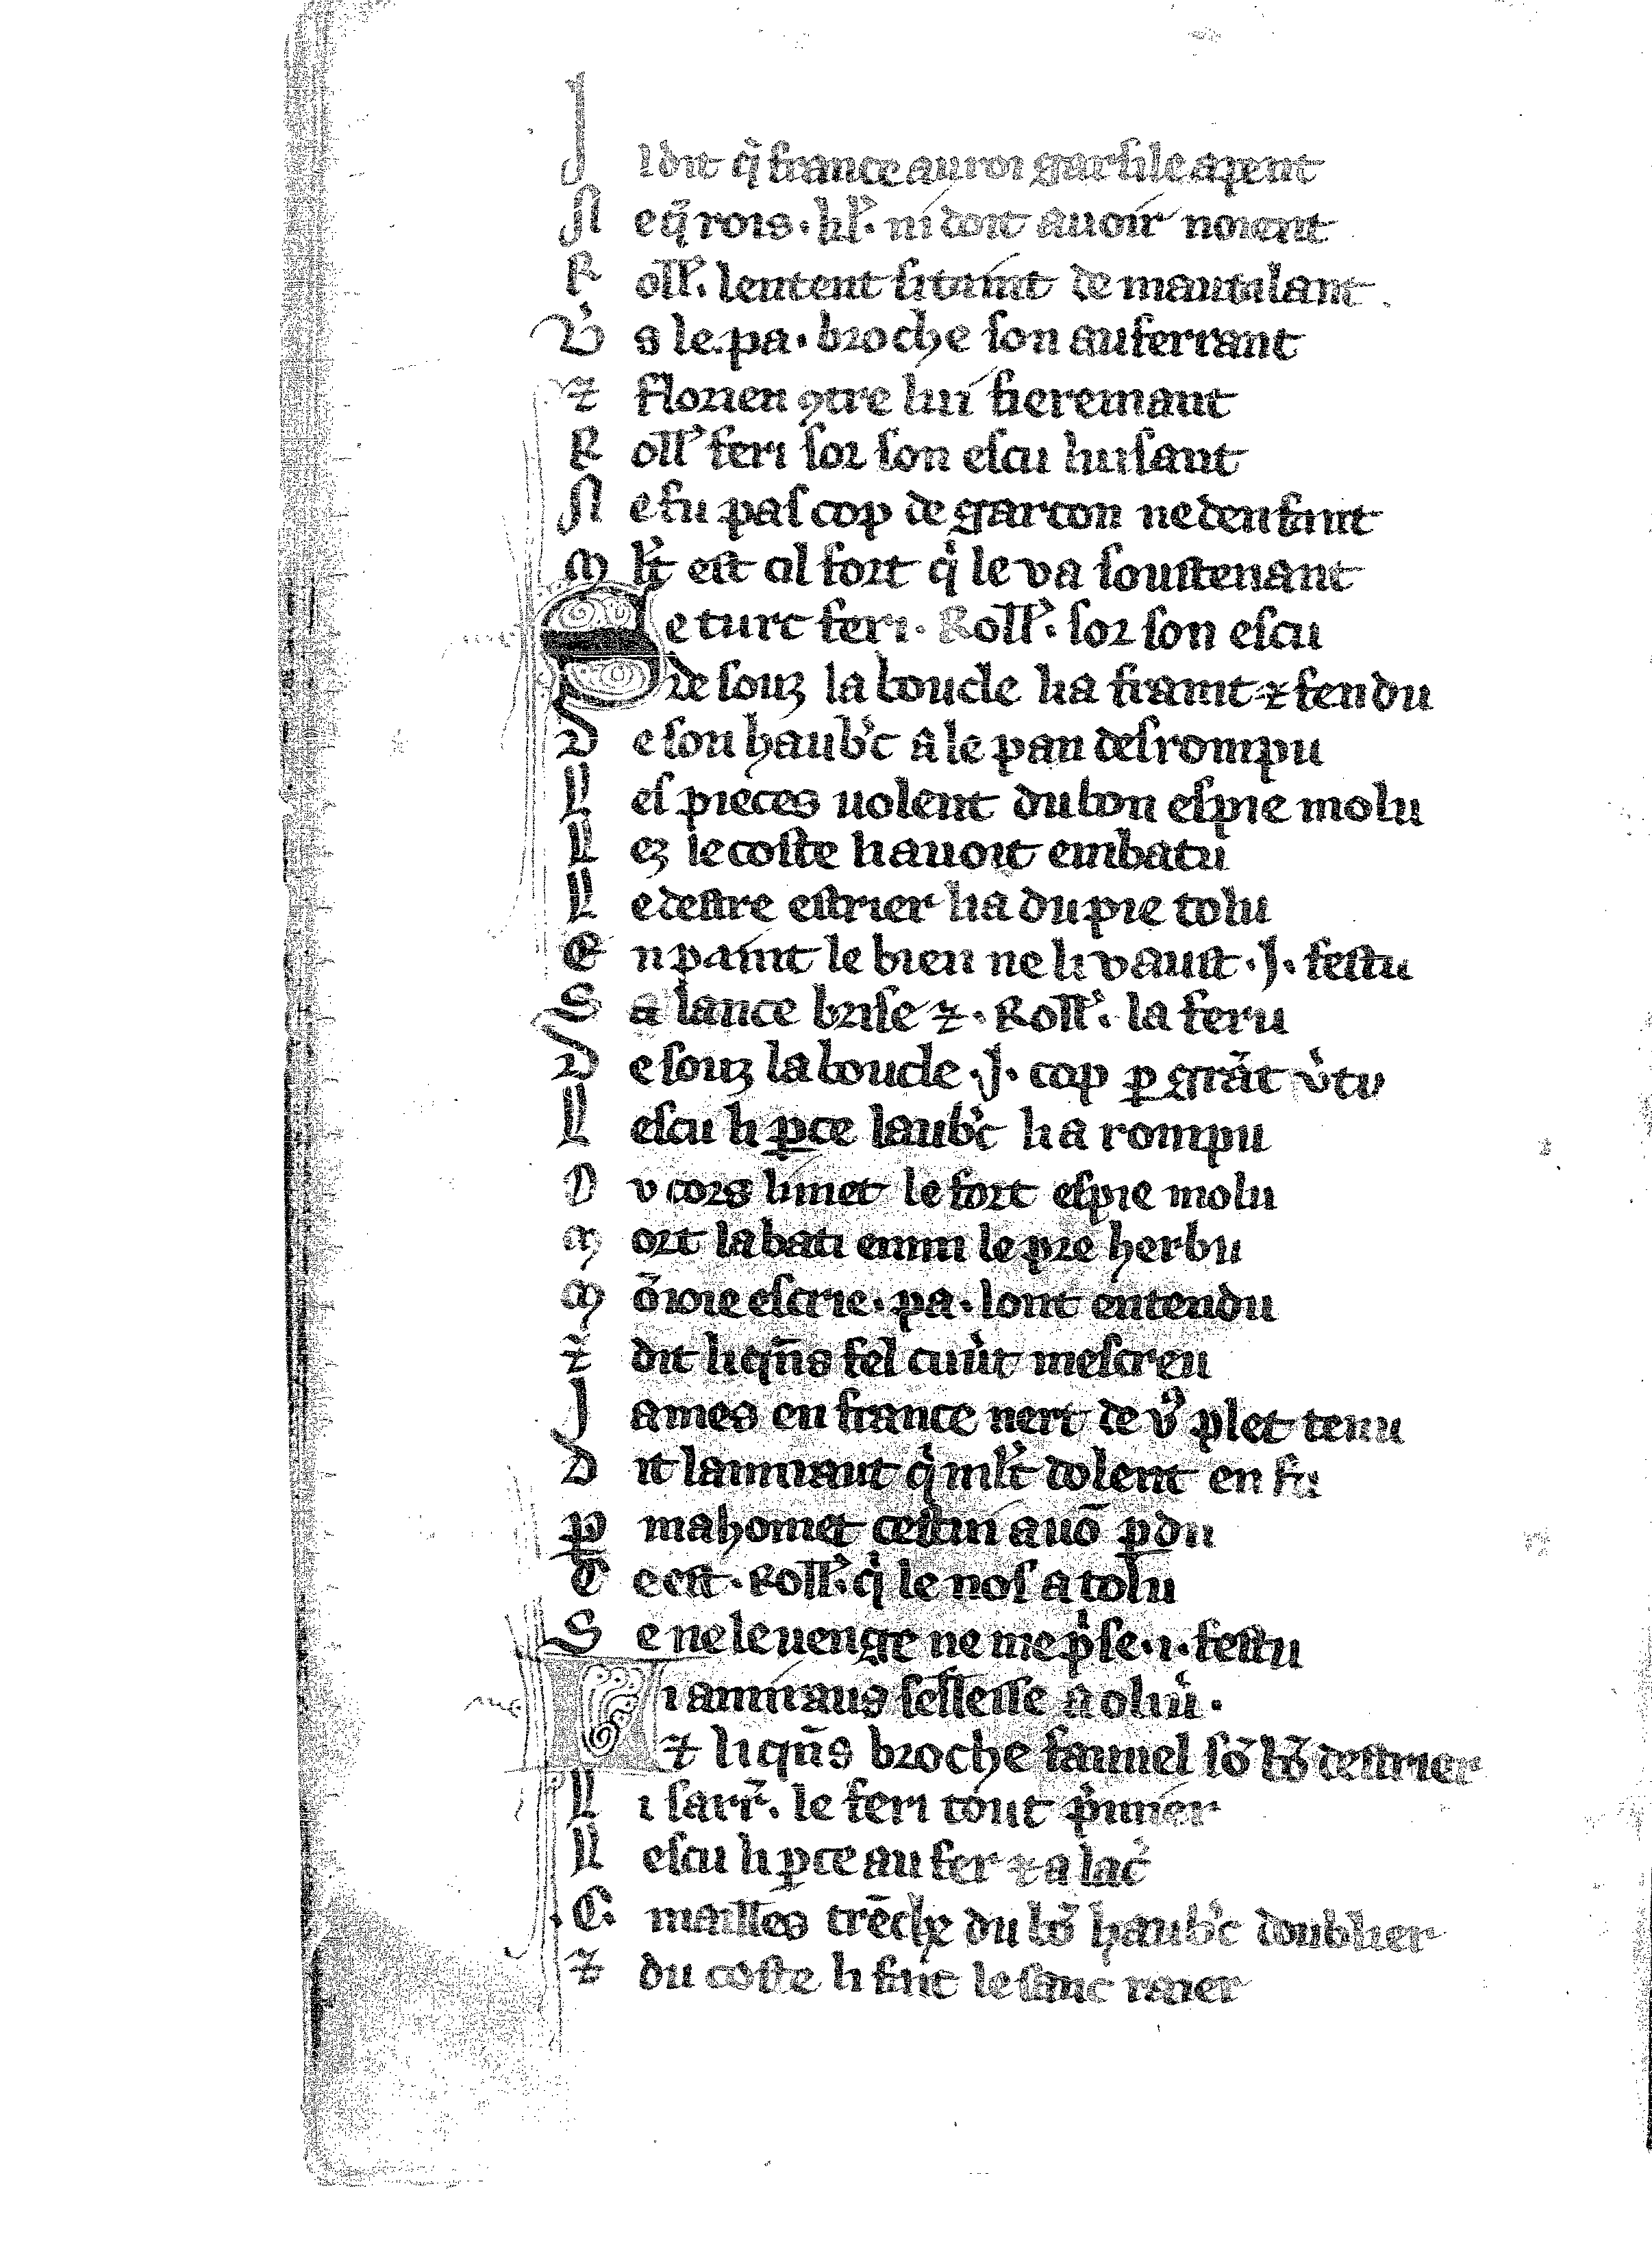 I l dit q̃ france au roi garsile apent
N e q̃ rois . kl'. ni doit auoir noient
R oll'. lentent si taint de mautalant
V' s le . pa . broche son auferrant
⁊ florien ꝯtre lui fieremant
R oll' feri sor son escu luisant
N e fu pas cop de garcon ne denfant
M lt' est cil fort q' le va soustenant
L e turc feri . Roll'. sor son escu
De souz la boucle li a fraint ⁊ fendu
D e son haub'c a le pan desrompu
L es pieces uolent du bon espie molu
L ez le coste li auoit embatu
L e destre estrier li a du pie tolu
E npaint le bien ne li vault . J . festu
S a lance brise ⁊ . Roll'. la feru
D e souz la boucle . J . cop ꝑ grãt v'tu
L escu li ꝑce laub'c li a rompu
D v cors li met le fort espie molu
M ort labati enmi le pre herbu
M õioie escrie . pa . lont entendu
⁊ dit li qñs fel cuiu't mescreu
J ames en france nert de v'r̃e plet tenu
D it lamiraut q' mlt' dolent en fu
P mahomet cestui auõ ꝑdu
C e est . Roll'. q' le nos a tolu
S e ne le uenge ne me p'se . i . festu
L i amiraus sesleisse a oliu' .
⁊ li qñs broche fauuel sõ bõ destrier
L i sarr'. le feri tout p'mier
L escu li ꝑce au fer ⁊ a lac'
. C . mailles trẽche du bõ haub'c doublier
⁊ du coste li fait le sanc raier